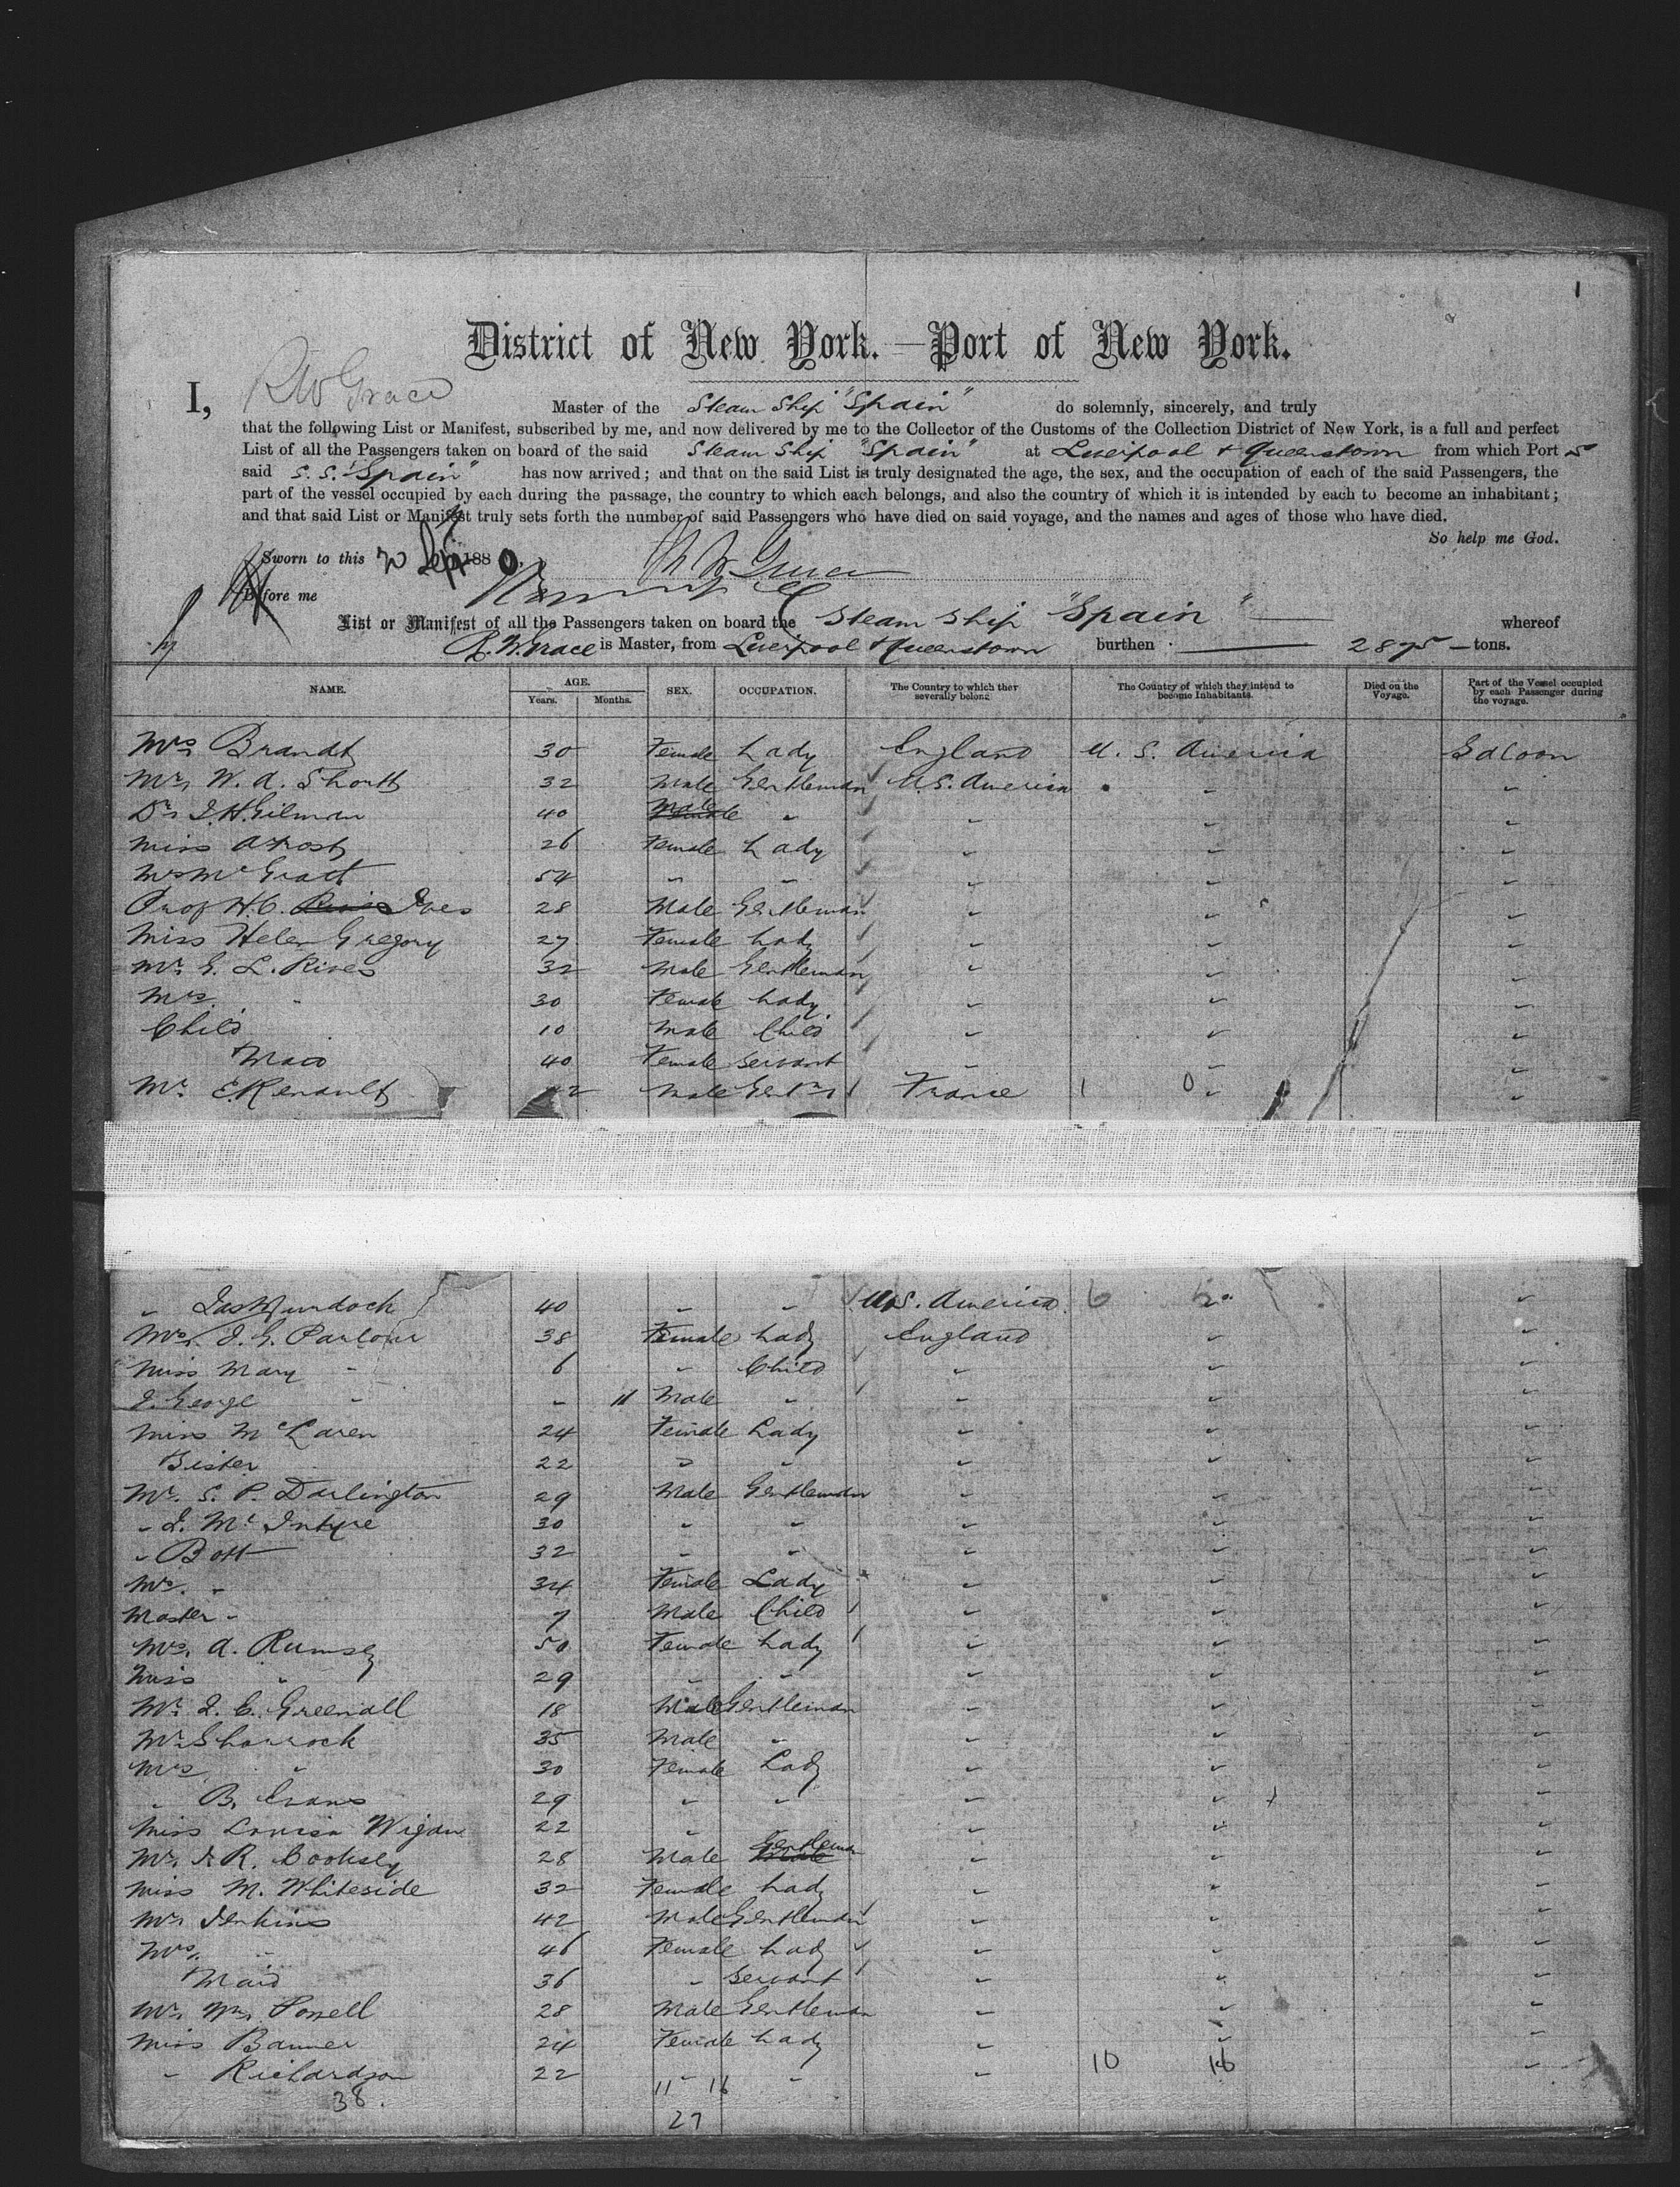 1
District of New York.—Port of New York.
I, R W Grace Master of the Steam Ship "Spain" do solemnly, sincerely, and truly
that the following List or Manifest, subscribed by me, and now delivered by me to the Collector of the Customs of the Collection District of New York, is a full and perfect
List of all the Passengers taken on board of the said Steam Ship "Spain" at Liverpool & Queenstown from which Port
said S.S. "Spain" has now arrived; and that on the said List is truly designated the age, the sex, and the occupation of each of the said Passengers, the
part of the vessel occupied by each during the passage, the country to which each belongs, and also the country of which it is intended by each to become an inhabitant;
and that said List or Manifest truly sets forth the number of said Passengers who have died on said voyage, and the names and ages of those who have died.
So help me God.
Sworn to this Sept 1880, R W Grace
Before me
List or Manifest of all the Passengers taken on board the Steam Ship "Spain" whereof
R. W. Grace is Master, from Liverpool & Queenstown burthen 2875 tons.
NAME. AGE. Years. Months. SEX. OCCUPATION. The Country to which they severally belong. The Country of which they intend to become Inhabitants. Died on the Voyage. Part of the Vessel occupied by each Passenger during the voyage.
Mrs Brandt 30 Female Lady England U. S. America Saloon
Mr. W. A. Shortt 32 Male Gentleman U.S. America " "
Dr J. H. Gilman 40 Male Female " " " "
Miss A Frost 26 Female Lady " " "
Mrs McGratt 54 " " " " "
Prof H. C. Rives Ives 28 Male Gentleman " " "
Miss Helen Gregory 27 Female Lady " " "
Mr. G. L. Rives 32 Male Gentleman " " "
Mrs. " 30 Female Lady " " "
Child 10 Male Child " " "
Maid 40 Female Servant " "
Mr. E. Renault 2 Male Gentn 1 France 1 0 " "
" Jas Murdock 40 " " U.S. America 6 5 " "
Mrs. J. G. Parlour 38 Female Lady England " "
Miss Mary " 6 " Child " " "
J. George " " 11 Male " " " "
Miss McLaren 24 Female Lady " " "
Sister 22 " " " " "
Mr. S. P. Darlington 29 Male Gentleman " " "
" J. McIntyre 30 " " " " "
" Bott 32 " " " " "
Mrs. " 34 Female Lady " " "
Master " 7 Male Child " " "
Mrs. A. Rumsey 50 Female Lady " " "
Miss " 29 " " " " "
Mr. J. C. Greenall 18 Male Gentleman " " "
Mr Sharrock 35 Male " " " "
Mrs " 30 Female Lady " " "
" B. Evans 29 " " " " "
Miss Louisa Wigan 22 " " " "
Mr. J. R. Booksey 28 Male Gentleman Male " " "
Miss M. Whiteside 32 Female Lady " " "
Mr Jenkins 42 Male Gentleman " " "
Mrs. " 46 Female Lady " " "
Maid 36 " Servant " " "
Mr. Wm. Powell 28 Male Gentleman " " "
Miss Banner 24 Female Lady " " "
" Richardson 22 " " " 10 16 "
38. 11 16
27